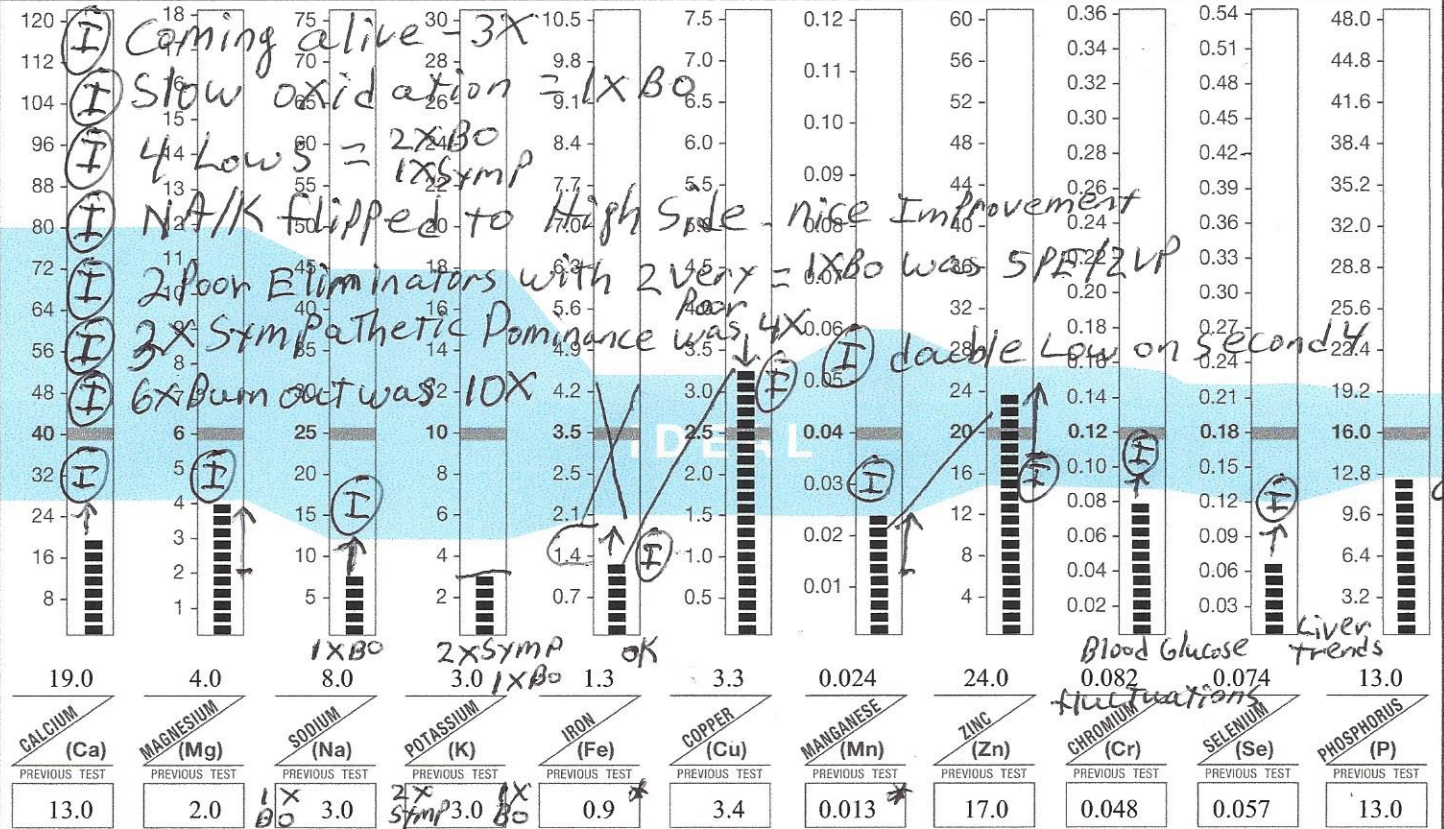 I Coming alive - 3X
I Slow oxidation = 1X BO
I 4 Lows = 2X BO
1X Symp
I NA/K flipped to High Side - nice Improvement
I 2 Poor Eliminators with 2 very Poor = 1XBO was 5PE/2VP
I 3X Sympathetic Dominance was 4X
I double Low on second 4
I 6X Burn out was 10X
IDEAL
120 112 104 96 88 80 72 64 56 48 40 32 24 16 8
18 17 16 15 14 13 12 11 10 8 6 5 4 3 2 1
75 70 65 60 55 50 45 40 35 30 25 20 15 10 5
30 28 26 24 22 18 16 14 12 10 6 4 2
10.5 9.8 9.1 8.4 7.7 7.0 6.3 5.6 4.9 4.2 3.5 2.5 2.1 1.4 0.7
7.5 7.0 6.5 6.0 5.5 3.5 3.0 2.5 2.0 1.5 1.0 0.5
0.12 0.11 0.10 0.09 0.08 0.07 0.06 0.05 0.04 0.03 0.02 0.01
60 56 52 48 44 40 36 32 28 24 20 16 12 4
0.36 0.34 0.32 0.30 0.28 0.26 0.24 0.22 0.20 0.18 0.16 0.14 0.12 0.10 0.08 0.06 0.04 0.02
0.54 0.51 0.48 0.45 0.42 0.39 0.36 0.33 0.30 0.27 0.24 0.21 0.18 0.15 0.12 0.09 0.06 0.03
48.0 44.8 41.6 38.4 35.2 32.0 28.8 25.6 22.4 19.2 16.0 12.8 9.6 6.4 3.2
I I I I I I I I I
1XBO 2XSymp 1XBO OK Blood Glucose fluctuations Liver Trends
19.0 4.0 8.0 3.0 1.3 3.3 0.024 24.0 0.082 0.074 13.0
CALCIUM MAGNESIUM SODIUM POTASSIUM IRON COPPER MANGANESE ZINC CHROMIUM SELENIUM PHOSPHORUS
(Ca) (Mg) (Na) (K) (Fe) (Cu) (Mn) (Zn) (Cr) (Se) (P)
PREVIOUS TEST PREVIOUS TEST PREVIOUS TEST PREVIOUS TEST PREVIOUS TEST PREVIOUS TEST PREVIOUS TEST PREVIOUS TEST PREVIOUS TEST PREVIOUS TEST PREVIOUS TEST
13.0 2.0 1X BO 3.0 2X Symp 3.0 1X BO 0.9 * 3.4 0.013 * 17.0 0.048 0.057 13.0